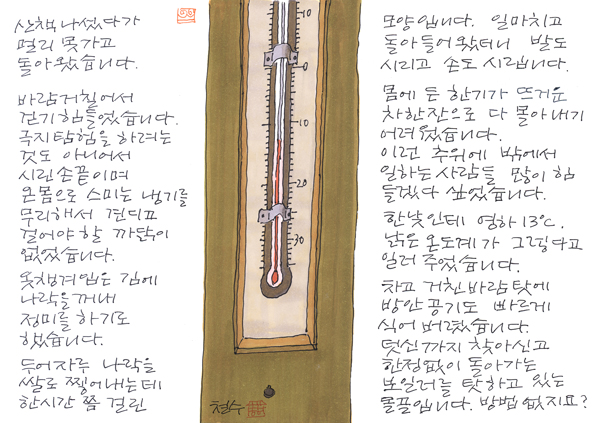 산책 나섰다가
멀리 못가고
돌아왔습니다.
바람 거칠어서
걷기 힘들었습니다.
극지탐험을 하려는
것도 아니어서
시린 손끝이며
온몸으로 스미는 냉기를
무리해서 견디고
걸어야 할 까닭이
없었습니다.
옷 챙겨 입은 김에
나락을 꺼내
정미를 하기도
했습니다.
두어자루 나락을
쌀로 찧어내는데
한시간 쯤 걸린
10
0
10
20
30
철수
모양입니다. 일 마치고
돌아 들어 왔더니 발도
시리고 손도 시립니다.
몸에 든 한기가 뜨거운
차 한잔으로 다 몰아내기
어려웠습니다.
이런 추위에 밖에서
일하는 사람들 많이 힘
들겠다 싶었습니다.
한낮인데 영하 13℃.
낡은 온도계가 그렇다고
일러 주었습니다.
차고 거친 바람 탓에
방안 공기도 빠르게
식어 버렸습니다.
덧신까지 찾아 신고
한정없이 돌아가는
보일러를 탓하고 있는
몰골입니다. 방법 없지요?